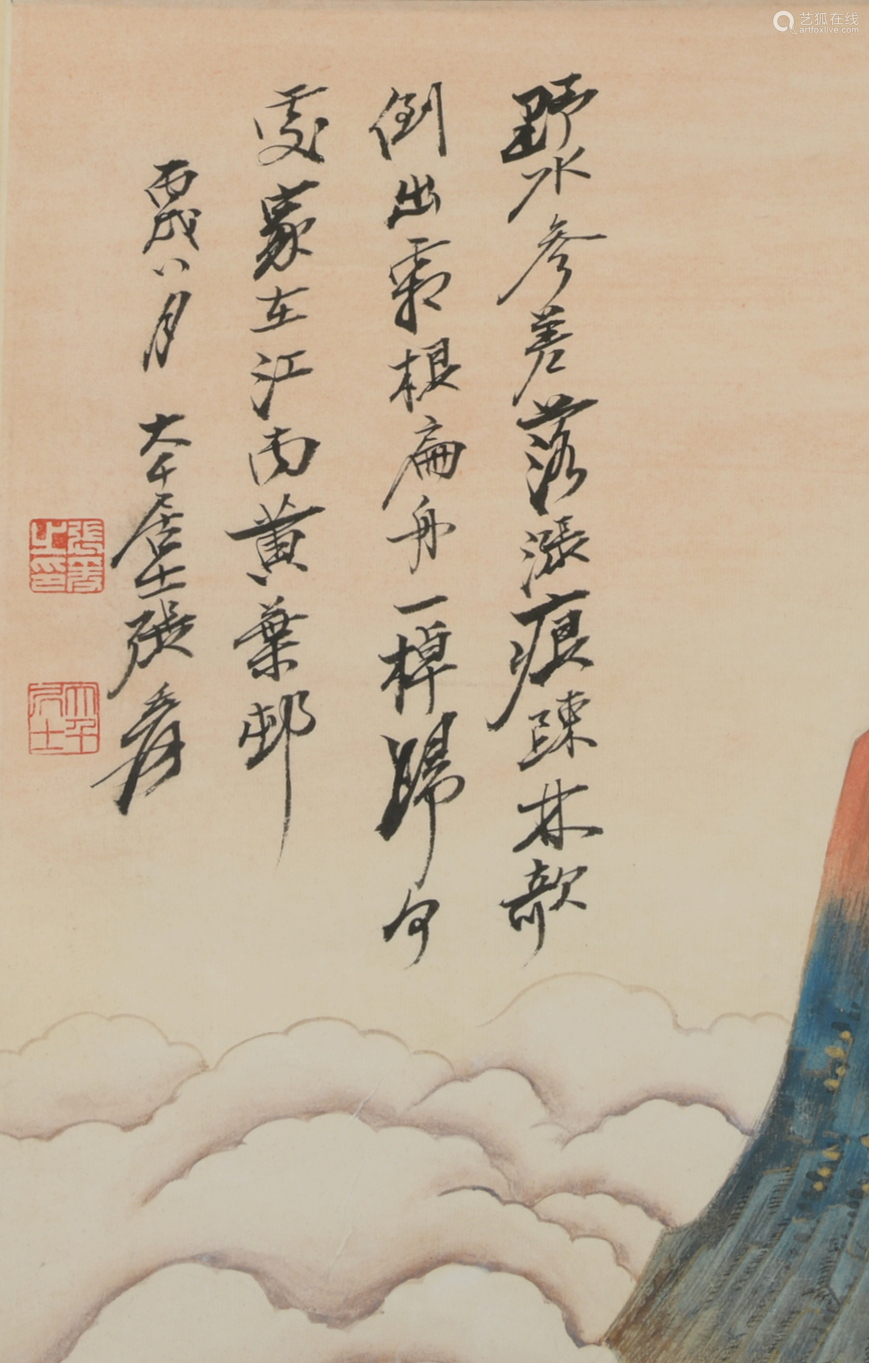 野水參差落漲痕疎林欹
倒出霜根扁舟一棹歸何
處家在江南黃葉邨
丙戌八月 大千居士張爰
張爰之印
大千居士
艺狐在线
artfoxlive.com